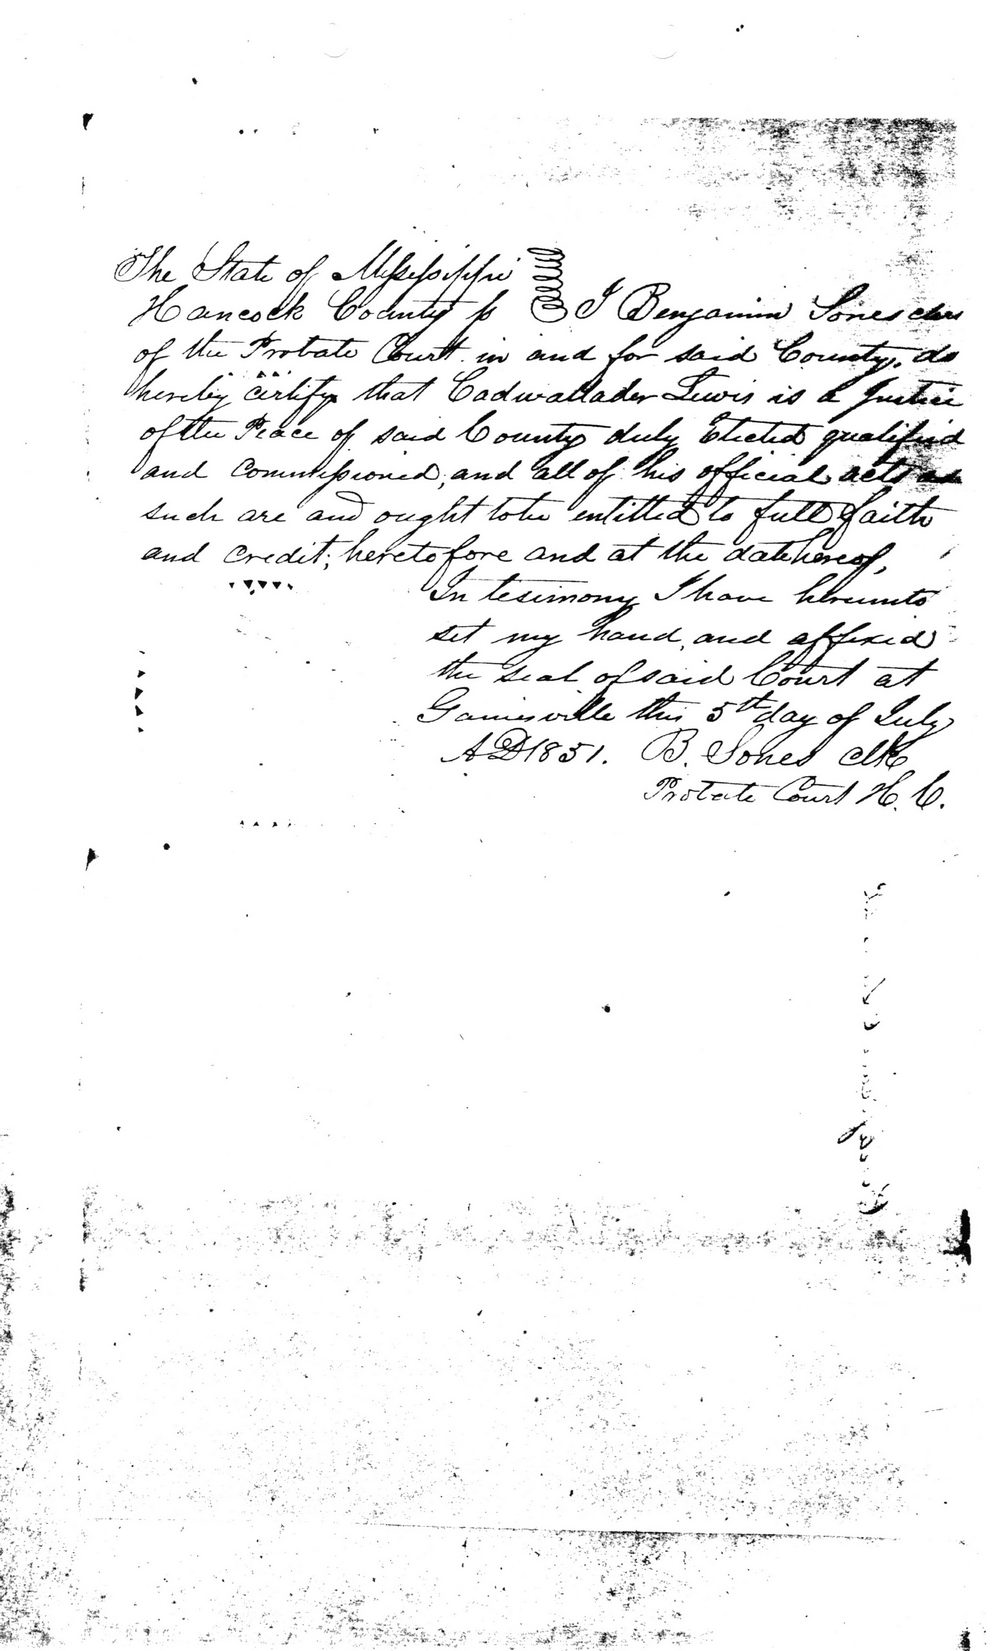 The State of Mississippi
Hancock County ss I Benjamin Sones clerk
of the Probate Court in and for said County, do
hereby certify that Cadwallader Lewis is a Justice
of the Peace of said County duly Elected qualified
and Commissioned, and all of his official acts as
such are and ought to be entitled to full faith
and credit; heretofore and at the date hereof,
In tesimony I have hereunto
set my hand, and affixed
the seal of said Court at
Gainesville this 5th day of July
AD 1851. B. Sones Clk
Probate Court H. C.